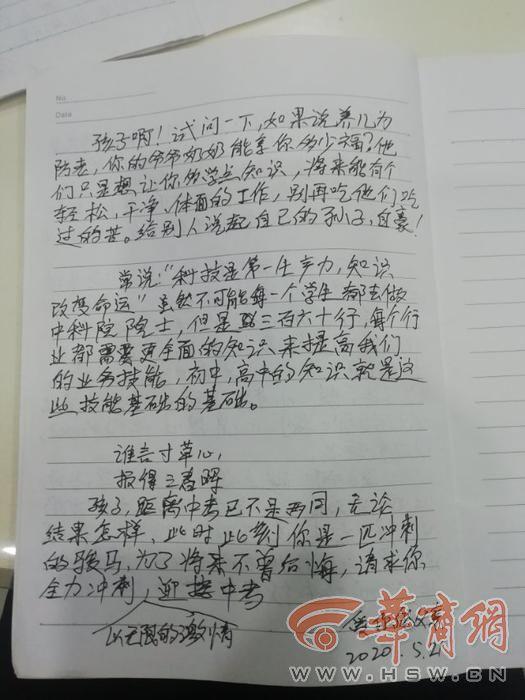 No.
Date
孩子啊！试问一下，如果说养儿为
防老，你的爷爷奶奶能享你多少福？他
们只是想让你多学点知识，将来能有个
轻松，干净、体面的工作，别再吃他们吃
过的苦。给别人说起自己的孙子，自豪！
常说：“科技是第一生产力，知识
改变命运”虽然不可能每一个学生都去做
中科院院士，但是三百六十行，每个行
业都需要更全面的知识来提高我们
的业务技能，初中，高中的知识就是这
些技能基础的基础。
谁言寸草心，
报得三春晖
孩子，距离中考已不是两周，无论
结果怎样、此时此刻你是一匹冲刺
的骏马，为了将来不曾后悔，请求你
全力冲刺，迎接中考
以无限的激情
2020 5.21
华商网
WWW.HSW.CN